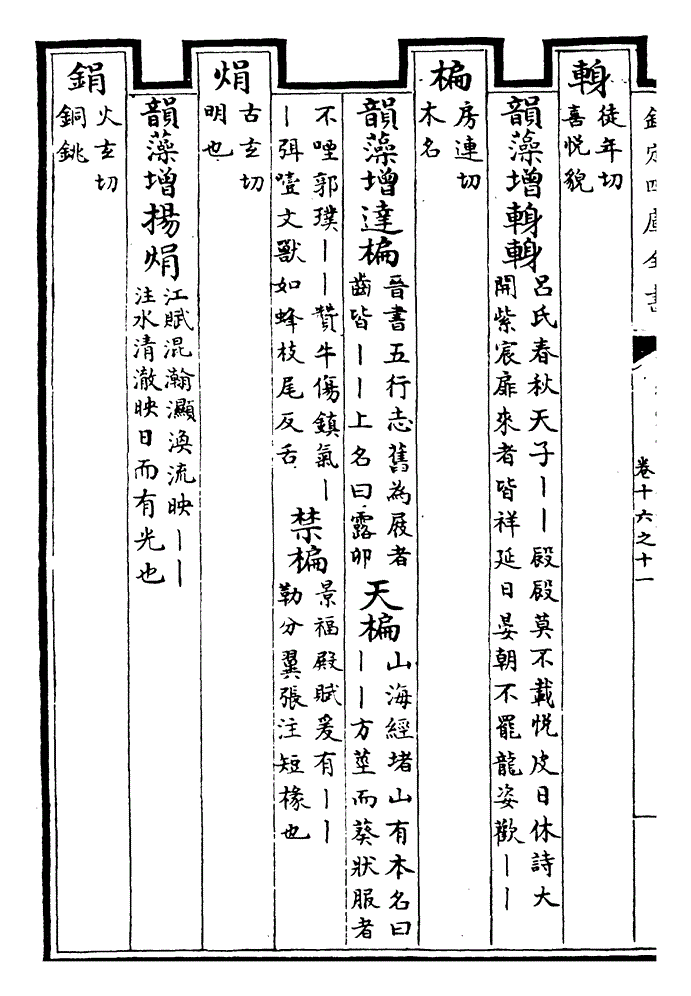 欽定四庫全書
卷十六之十一
徒年切
喜悅貌
韻藻增
呂氏春秋天子丨丨殷殷莫不載悅皮日休詩大
開紫宸扉來者皆祥延日晏朝不罷龍姿歡丨丨
楄
房連切
木名
韻藻增達楄
晉書五行志舊為屐者
齒皆丨丨上名曰露卯
天楄
山海經堵山有木名曰
丨丨方莖而葵狀服者
不㖶郭璞丨丨贊牛傷鎮氣丨
丨弭噎文獸如蜂枝尾反舌
禁楄
景福殿賦爰有丨丨
勒分翼張注短椽也
焆
古玄切
明也
韻藻增揚焆
江賦混瀚灝渙流映丨丨
注水清澈映日而有光也
鋗
火玄切
銅銚